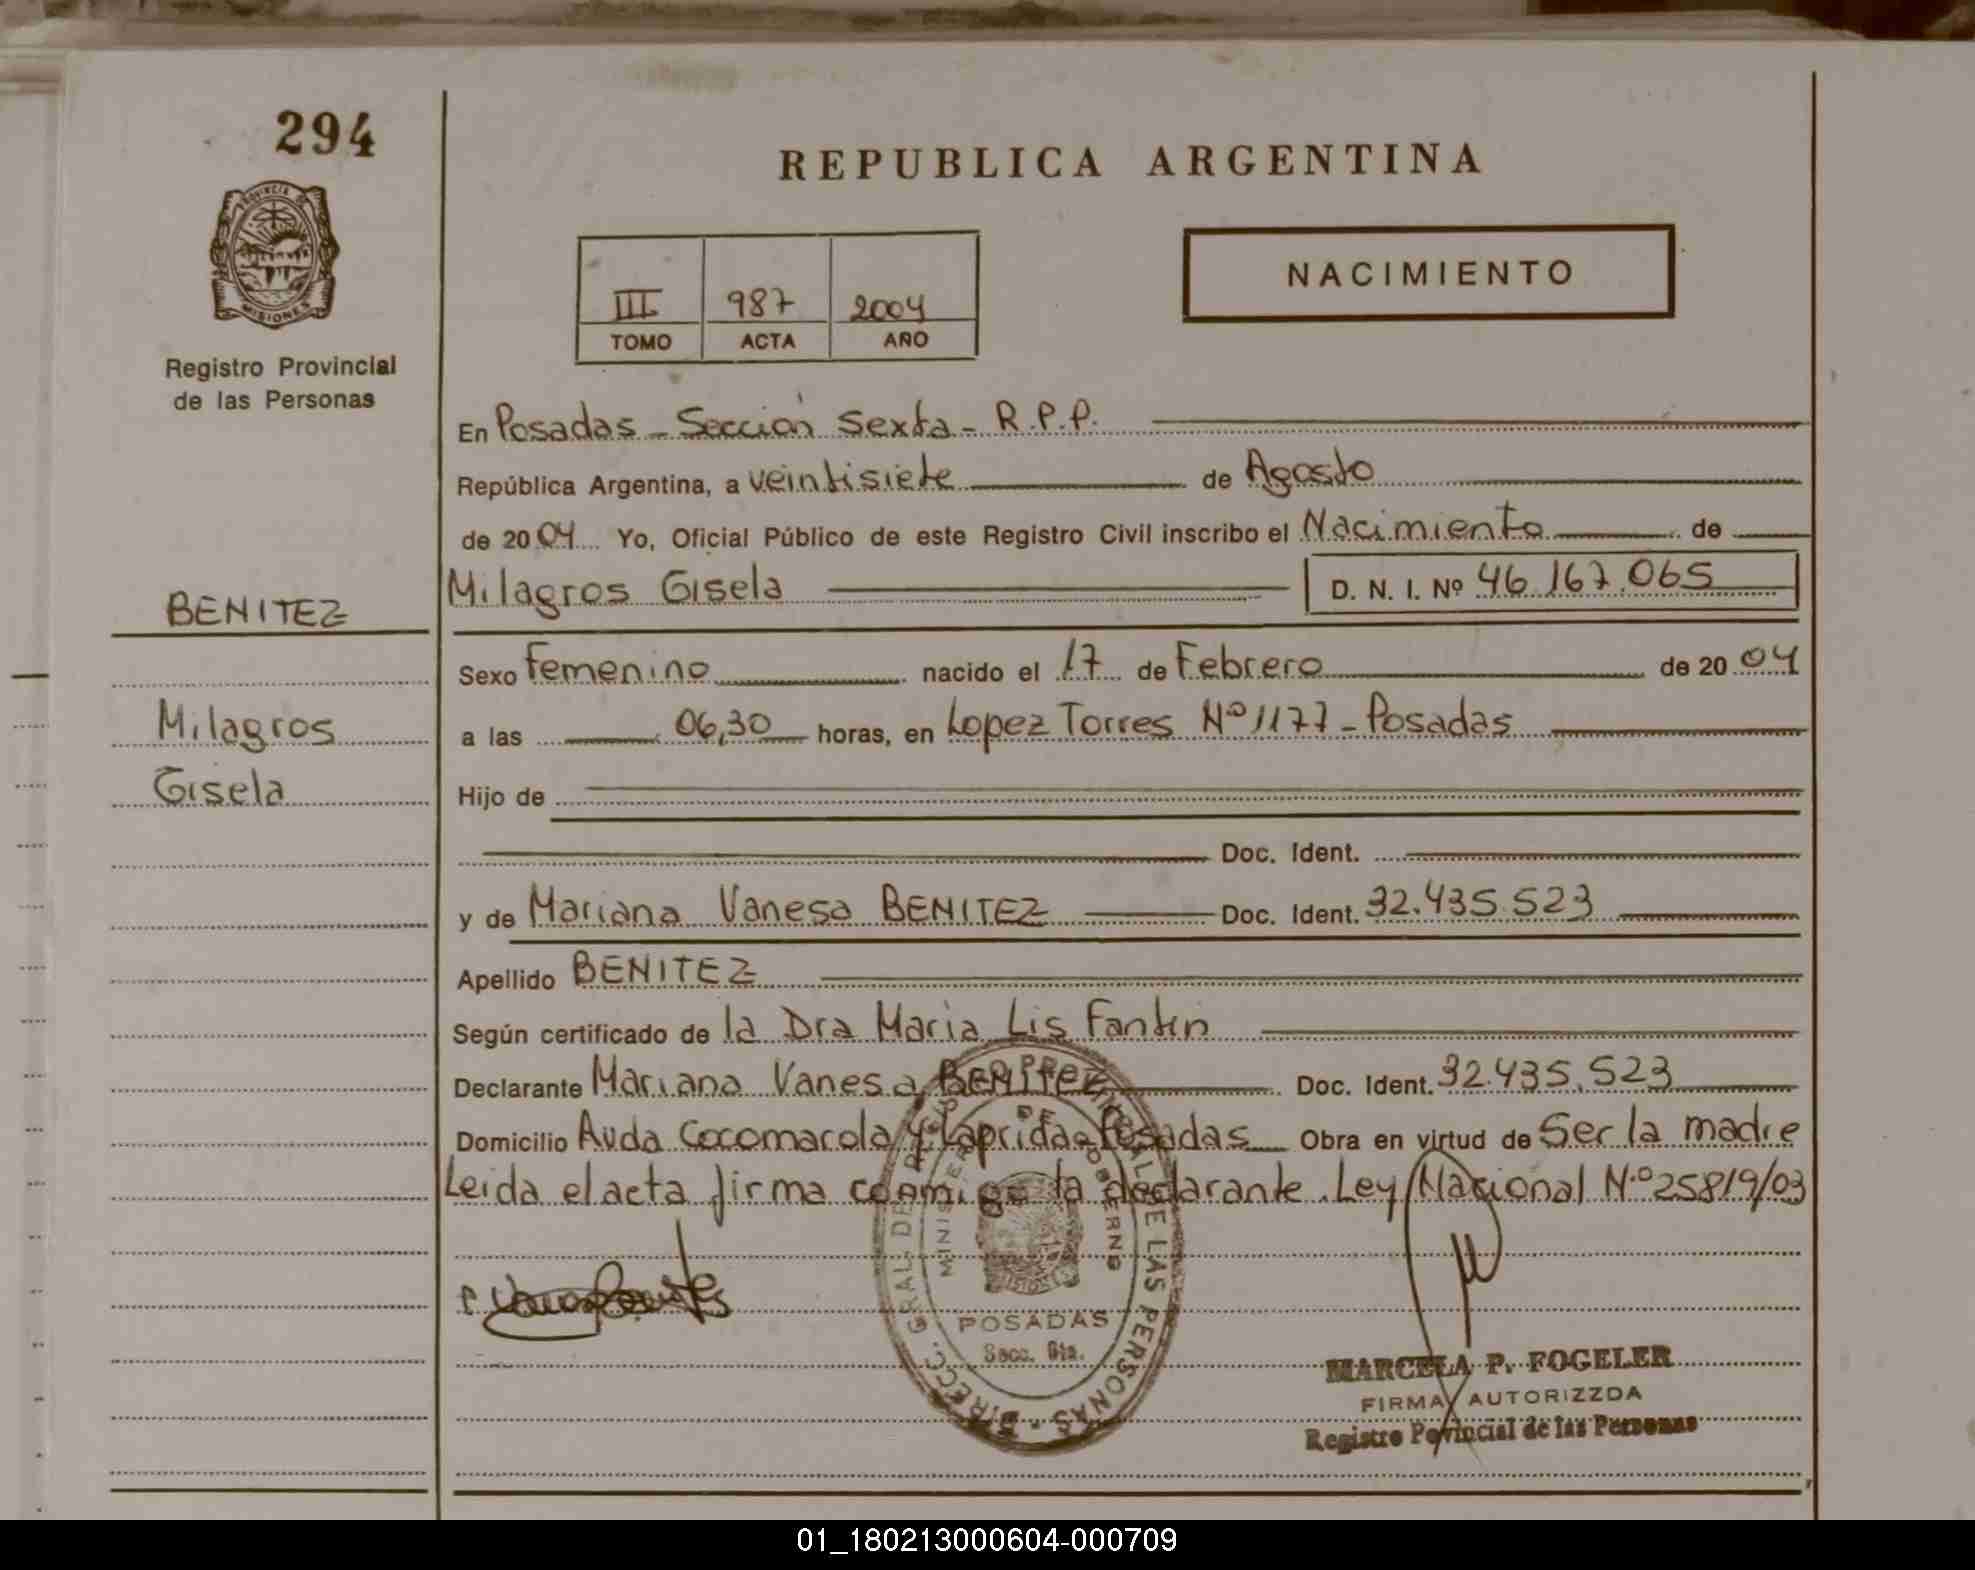 294
REPUBLICA ARGENTINA
PROVINCIA DE
MISIONES
III 987 2004
TOMO ACTA AÑO
NACIMIENTO
Registro Provincial
de las Personas
En Posadas - Sección Sexta - R.P.P.
República Argentina, a veintisiete de Agosto
de 2004 Yo, Oficial Público de este Registro Civil inscribo el Nacimiento de
Milagros Gisela D. N. I. Nº 46.167.065
BENITEZ
Milagros
Gisela
Sexo Femenino nacido el 17 de Febrero de 2004
a las 06,30 horas, en Lopez Torres Nº 1177 - Posadas
Hijo de
Doc. Ident.
y de Mariana Vanesa BENITEZ Doc. Ident. 32.435.523
Apellido BENITEZ
Según certificado de la Dra Maria Lis Fantin
Declarante Mariana Vanesa BENITEZ Doc. Ident. 32.435.523
Domicilio Avda Cocomarola y Laprida - Posadas Obra en virtud de Ser la madre
Leida el acta firma conmigo la declarante. Ley Nacional N.º 25819/03
DIRECC. GRAL. DE REGIST PROVINCIAL DE LAS PERSONAS
MINISTERIO DE GOBIERNO
MISIONES
POSADAS
Secc. 6ta.
MARCELA P. FOGELER
FIRMA AUTORIZZDA
Registro Povincial de las Personas
01_180213000604-000709